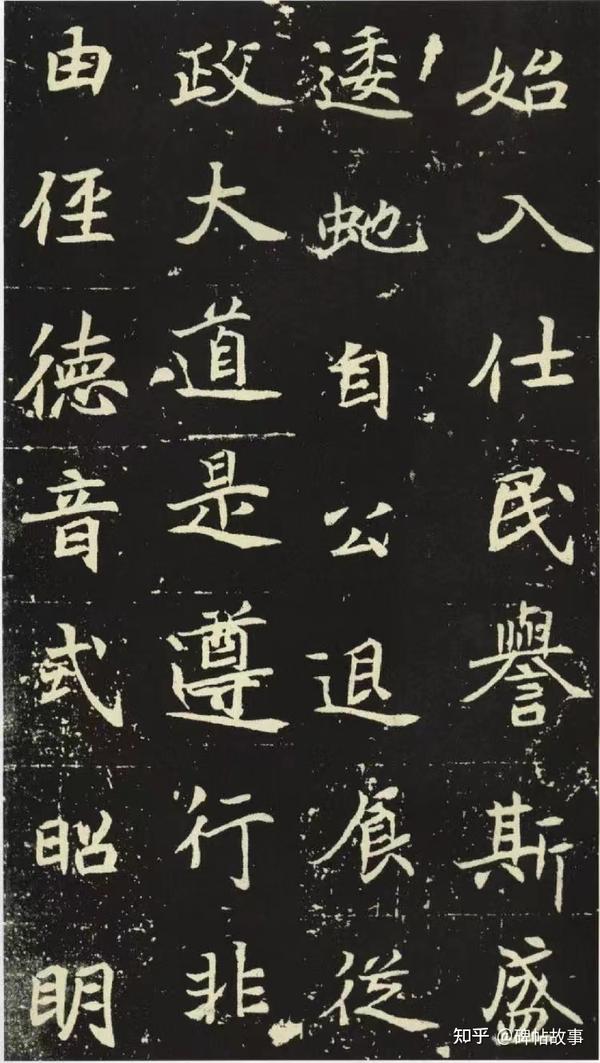 始入仕民譽斯盛
逶虵自公退食從
政大道是遵行非
由俓德音式昭明
知乎 @碑帖故事